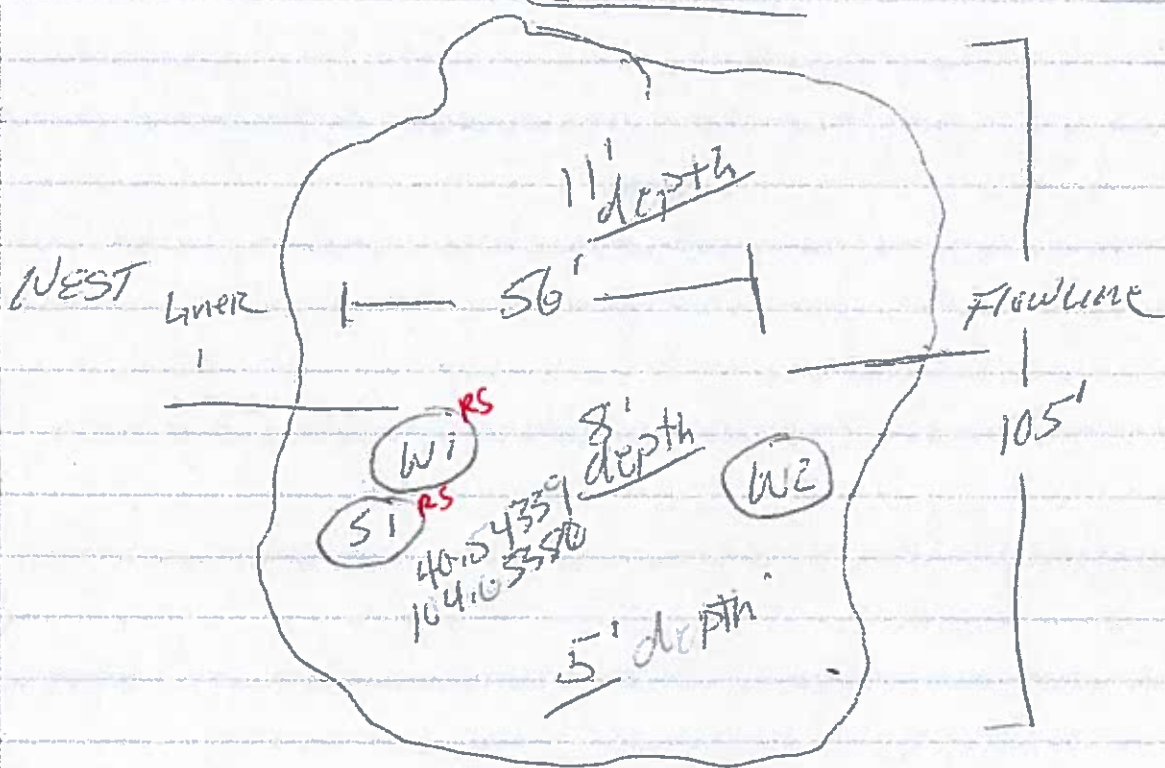 11' depth
NEST
liner
56'
Flowline
105'
W1 RS
8' depth
W2
S1 RS
40.54339
5' depth